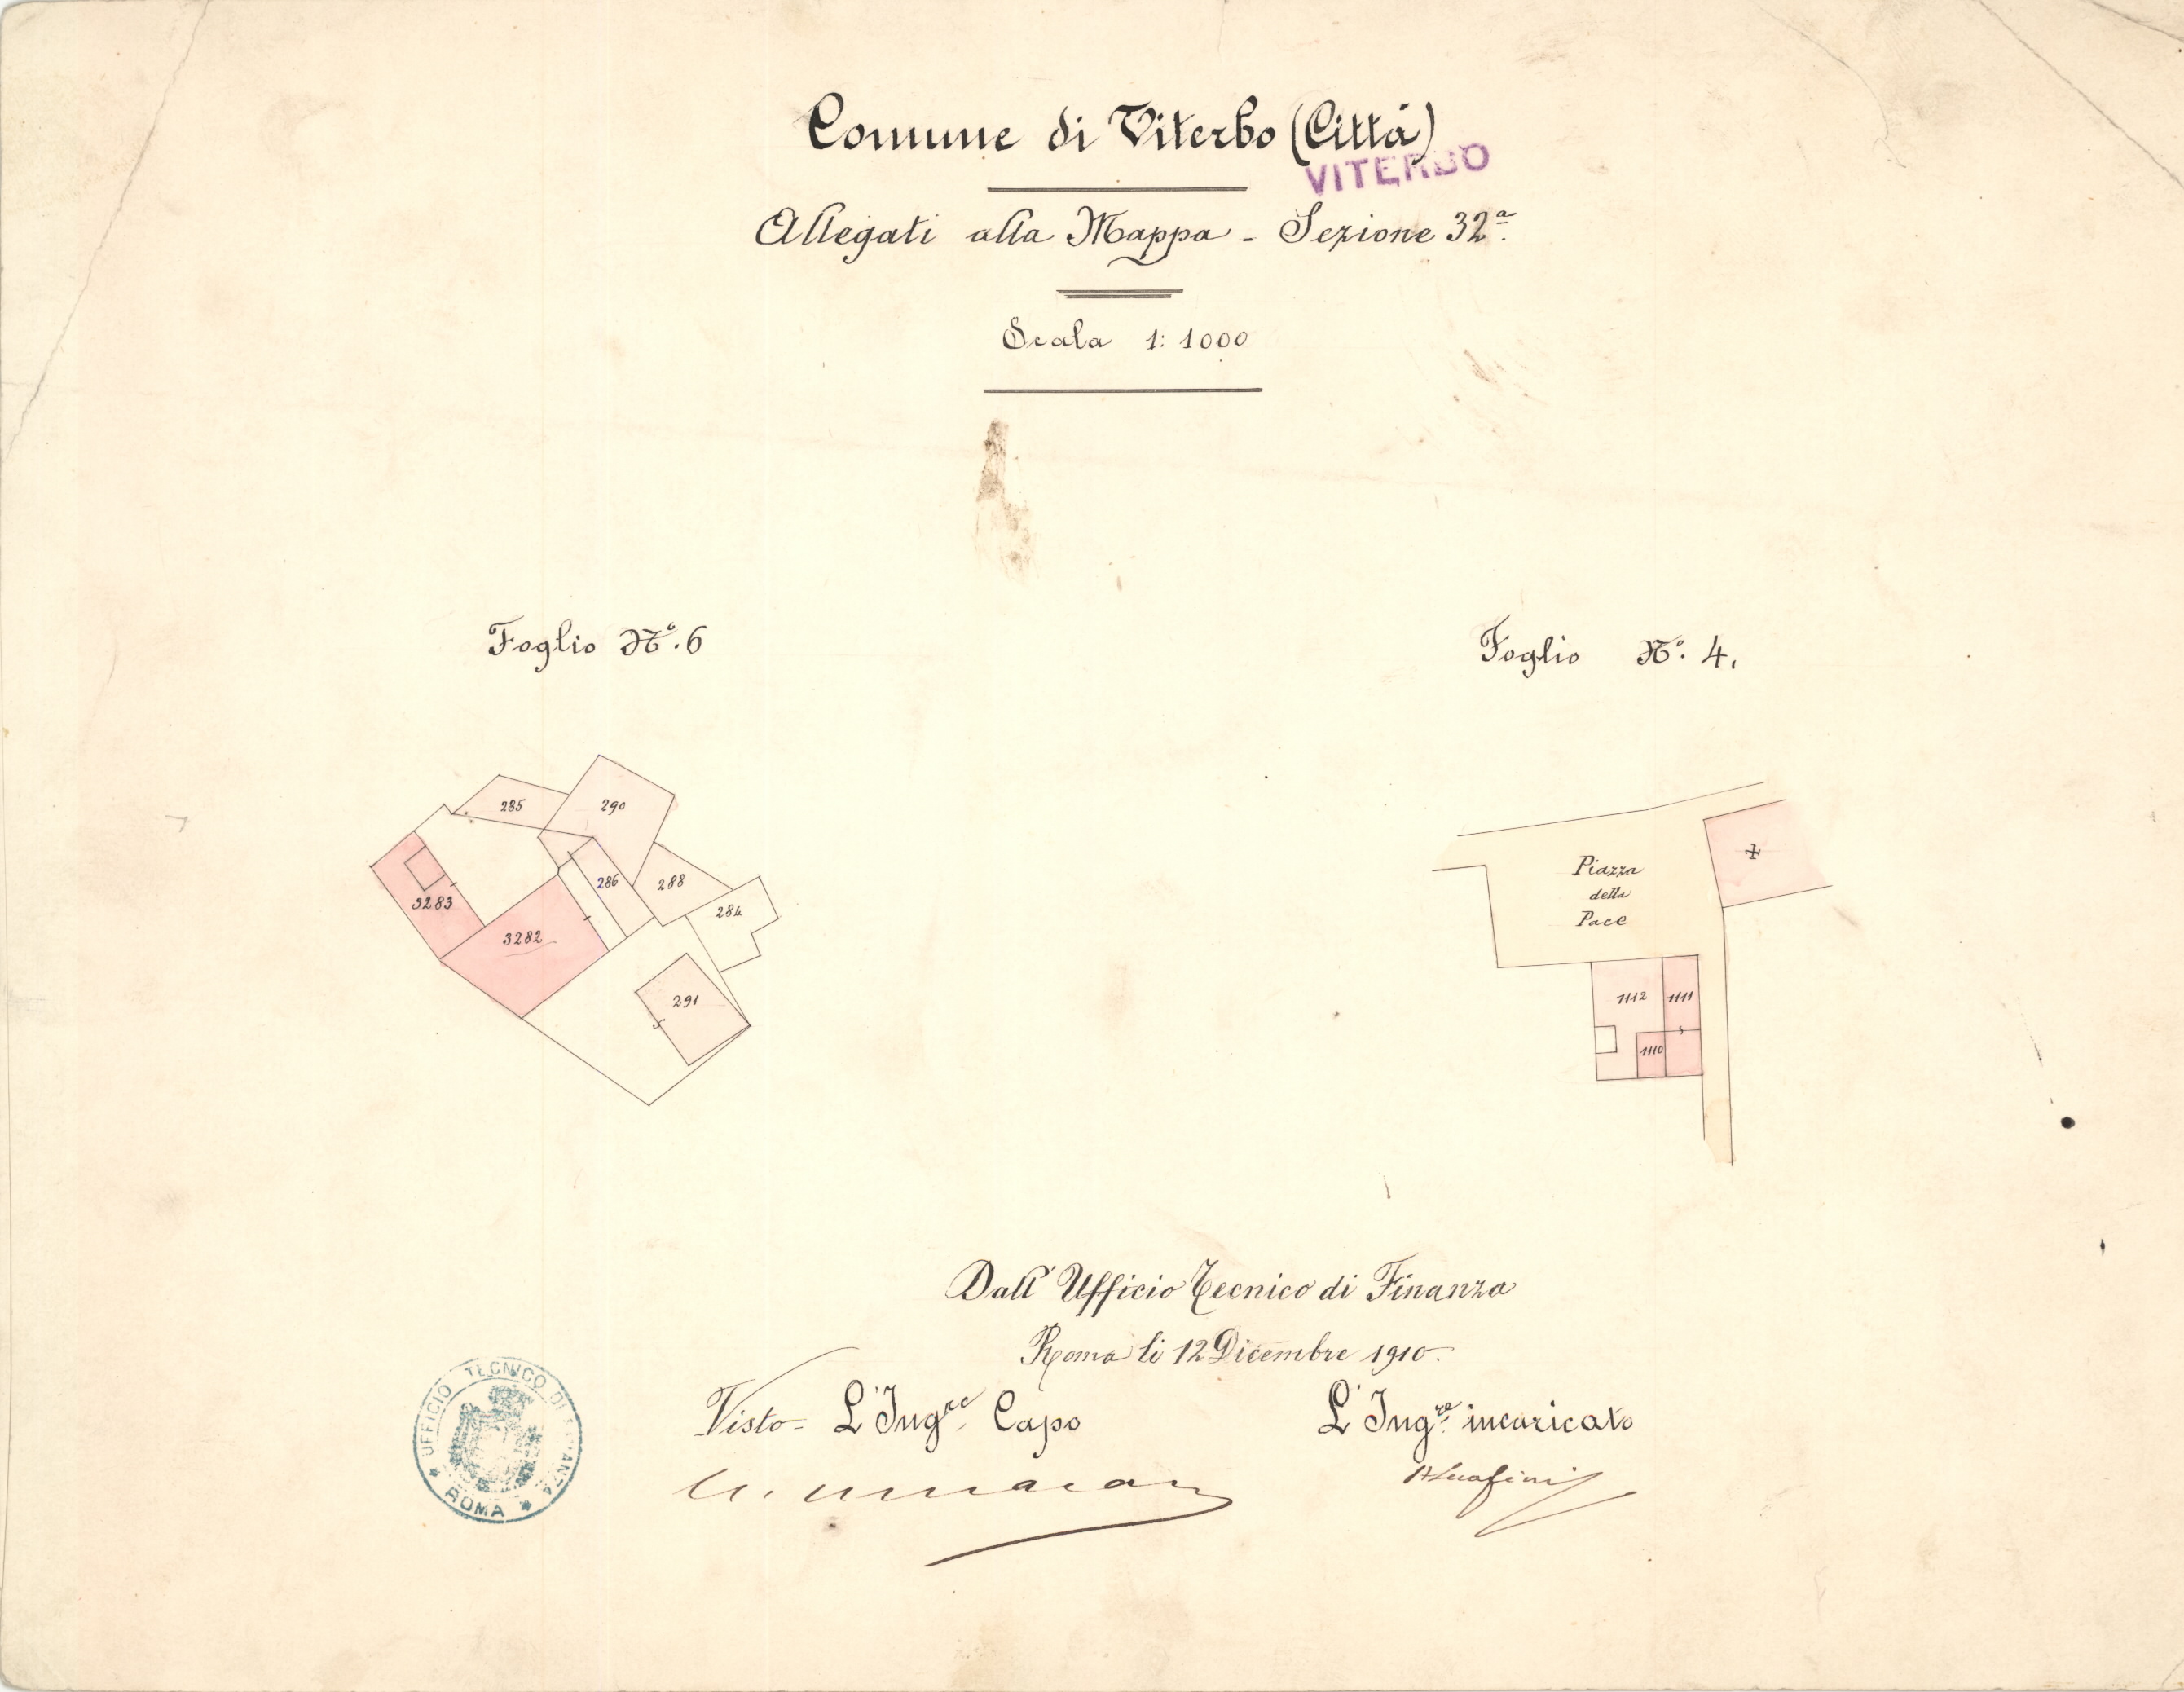 Comune di Viterbo (Città)
VITERBO
Allegati alla Mappa - Sezione 32ª.
Scala 1: 1000
Foglio N.º 6
285
290
286
288
284
3283
3282
291
Foglio N.º 4.
Piazza
della
Pace
1112
1111
1110
Dall' Ufficio Tecnico di Finanza
Roma li 12 Dicembre 1910.
Visto - L'Ing.re Capo
L'Ing.re incaricato
UFFICIO TECNICO DI FINANZA
ROMA